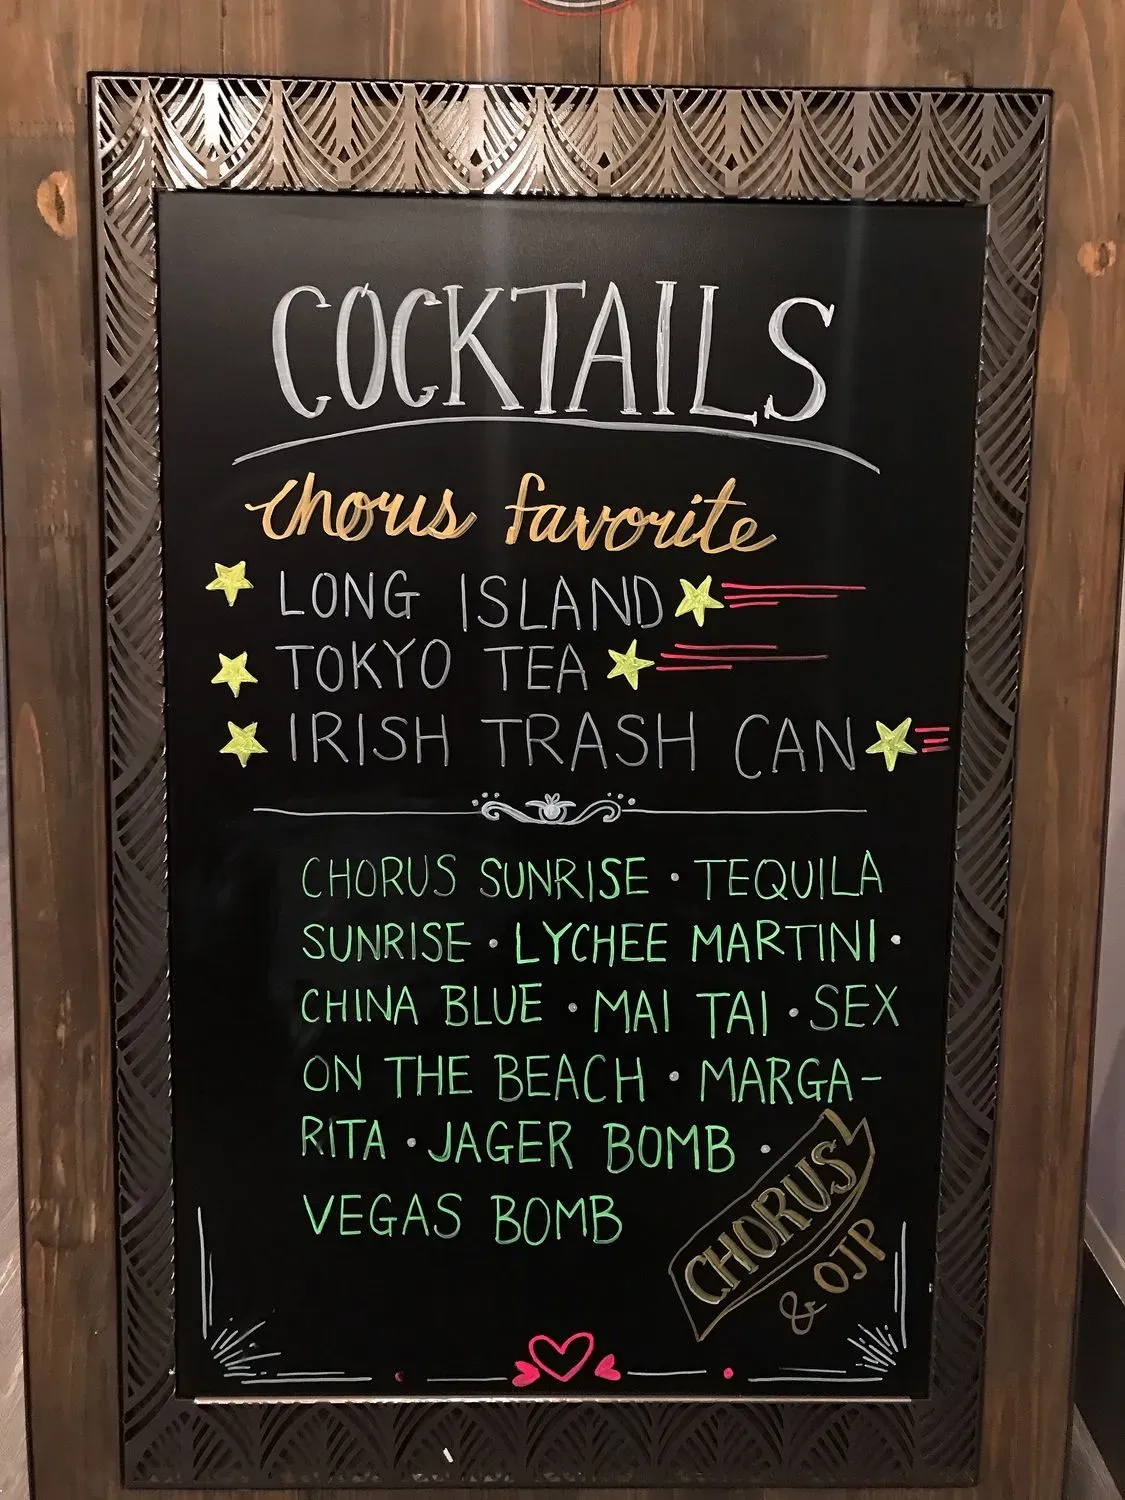 COCKTAILS
chorus favorite
LONG ISLAND
TOKYO TEA
IRISH TRASH CAN
CHORUS SUNRISE · TEQUILA
SUNRISE · LYCHEE MARTINI ·
CHINA BLUE · MAI TAI · SEX
ON THE BEACH · MARGA-
RITA · JAGER BOMB ·
VEGAS BOMB
CHORUS
& OJP